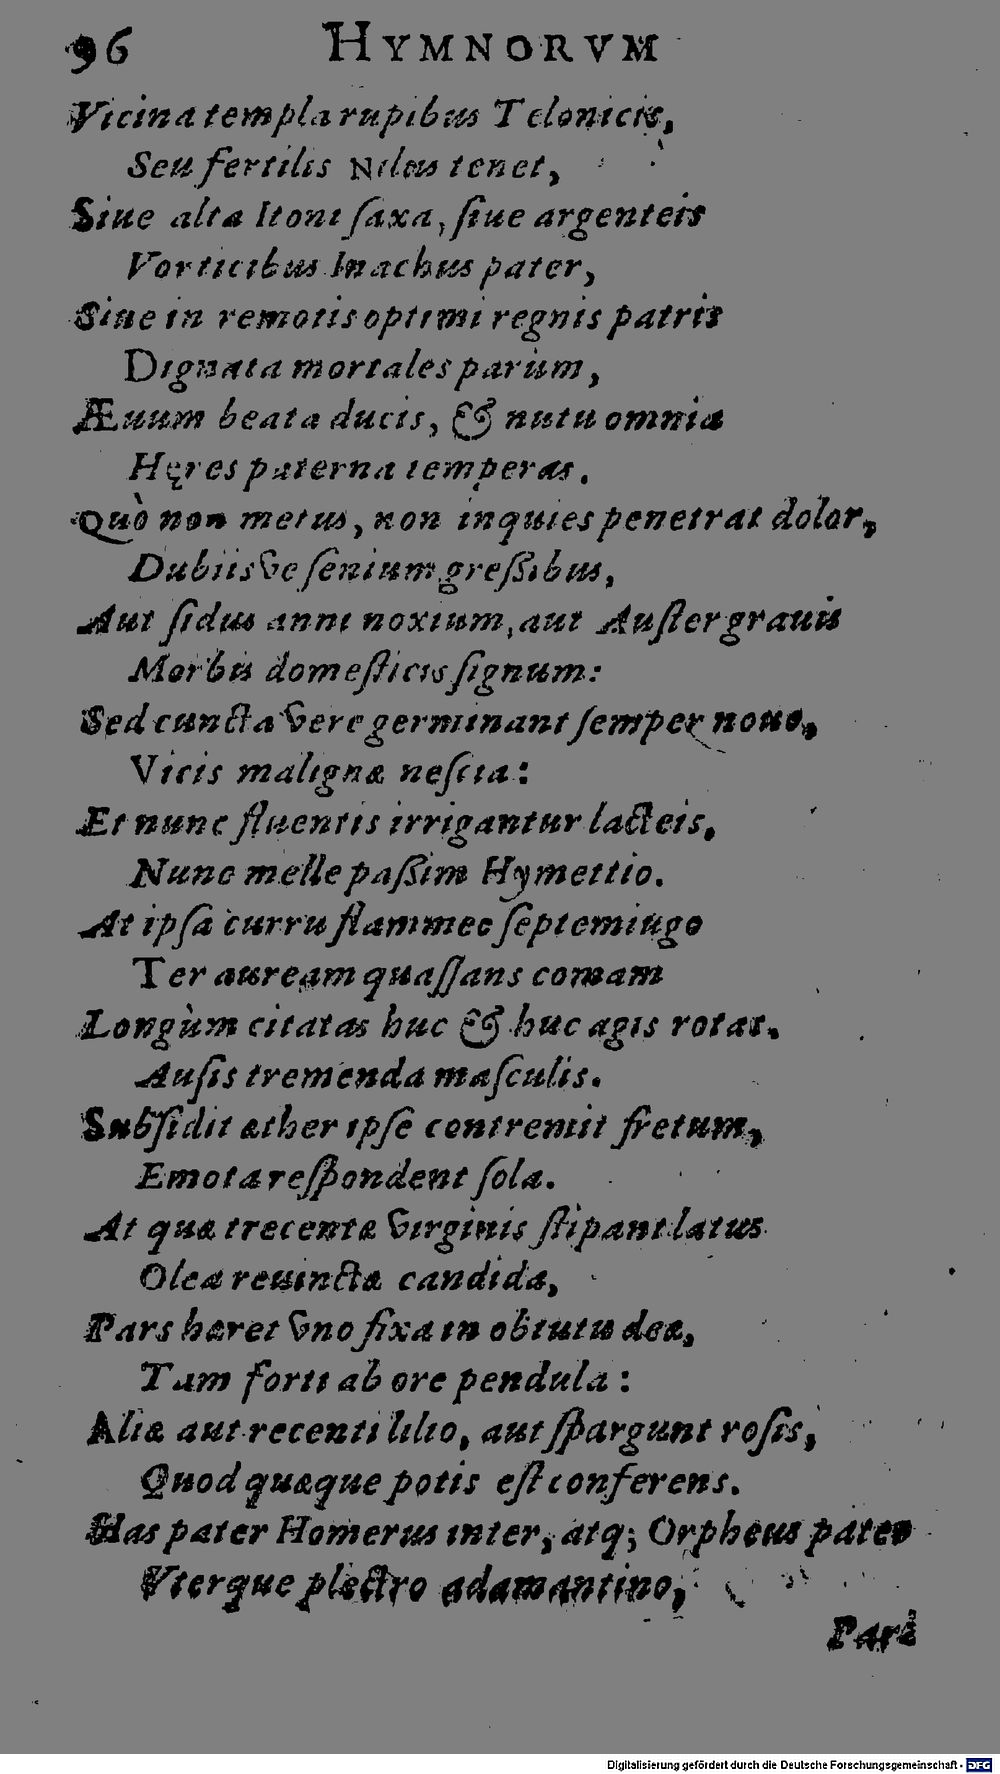 96 HYMNORVM
Vicina templa rupibus Telonicis,
Seu fertilis Nilus tenet,
Siue alta Itoni ſaxa, ſiue argenteis
Vorticibus Inachus pater,
Siue in remotis optimi regnis patris
Dignata mortales parùm,
Æuum beata ducis, & nutu omnia
Hęres paterna temperas.
Quò non metus, non inquies penetrat dolor,
Dubiisve ſenium greſſibus,
Aut ſidus anni noxium, aut Auſter grauis
Morbis domeſticis ſignum:
Sed cuncta vere germinant ſemper nouo,
Vicis malignæ neſcia:
Et nunc fluentis irrigantur lacteis,
Nunc melle paſſim Hymettio.
At ipſa curru flammeo ſeptemiugo
Ter auream quaſſans comam
Longùm citatas huc & huc agis rotas.
Auſis tremenda maſculis.
Subſidit æther ipſe contremit fretum,
Emota reſpondent ſola.
At quæ trecentæ virginis ſtipant latus
Oleæ reuinctæ candida,
Pars hæret vno fixa in obtutu deæ,
Tam forti ab ore pendula:
Aliæ aut recenti lilio, aut ſpargunt roſis,
Quod quæque potis eſt conferens.
Has pater Homerus inter, atq; Orpheus pater
Vterque plectro adamantino,
Pars
Digitalisierung gefördert durch die Deutsche Forschungsgemeinschaft - DFG